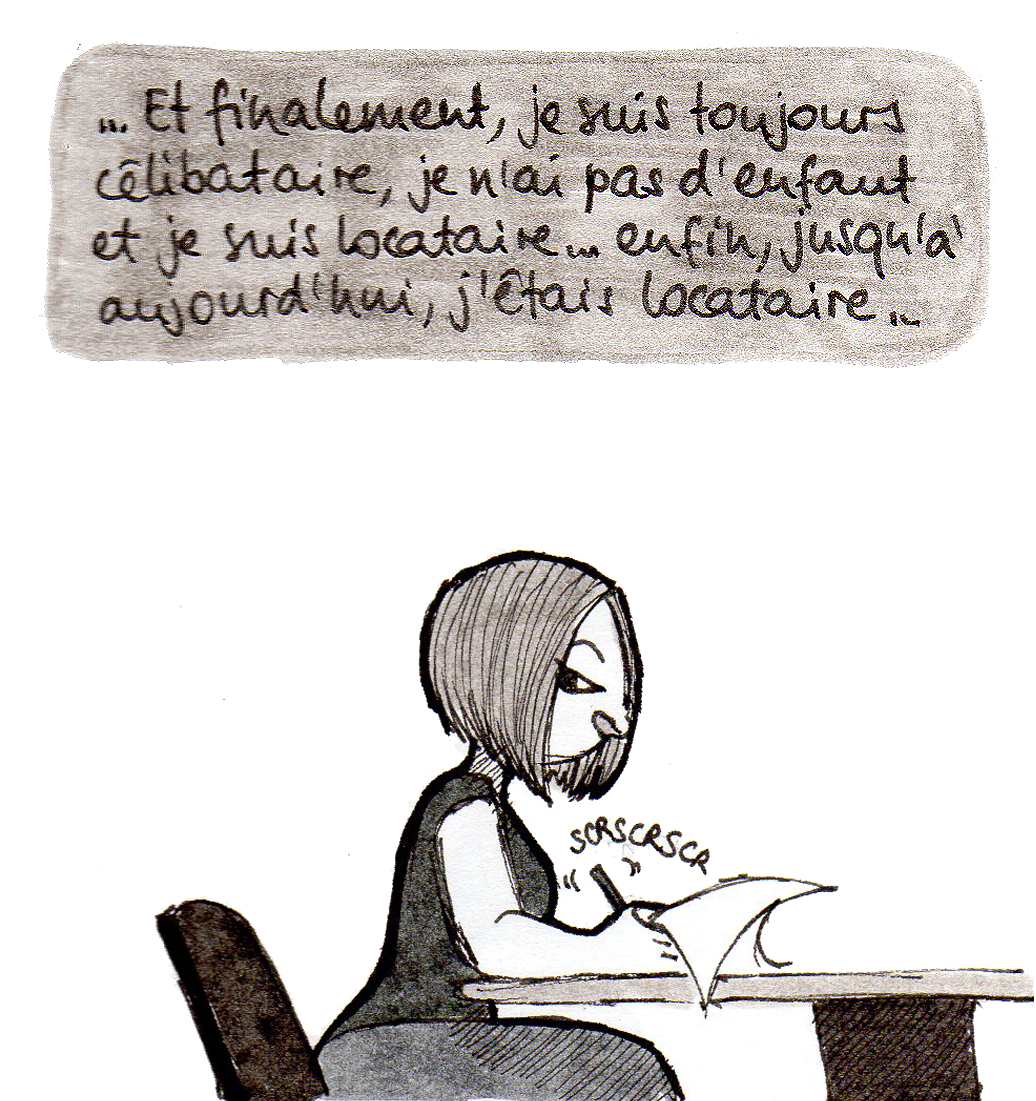 ... Et finalement, je suis toujours
célibataire, je n'ai pas d'enfant
et je suis locataire... enfin, jusqu'à
aujourd'hui, j'étais locataire...
SCRSCRSCR